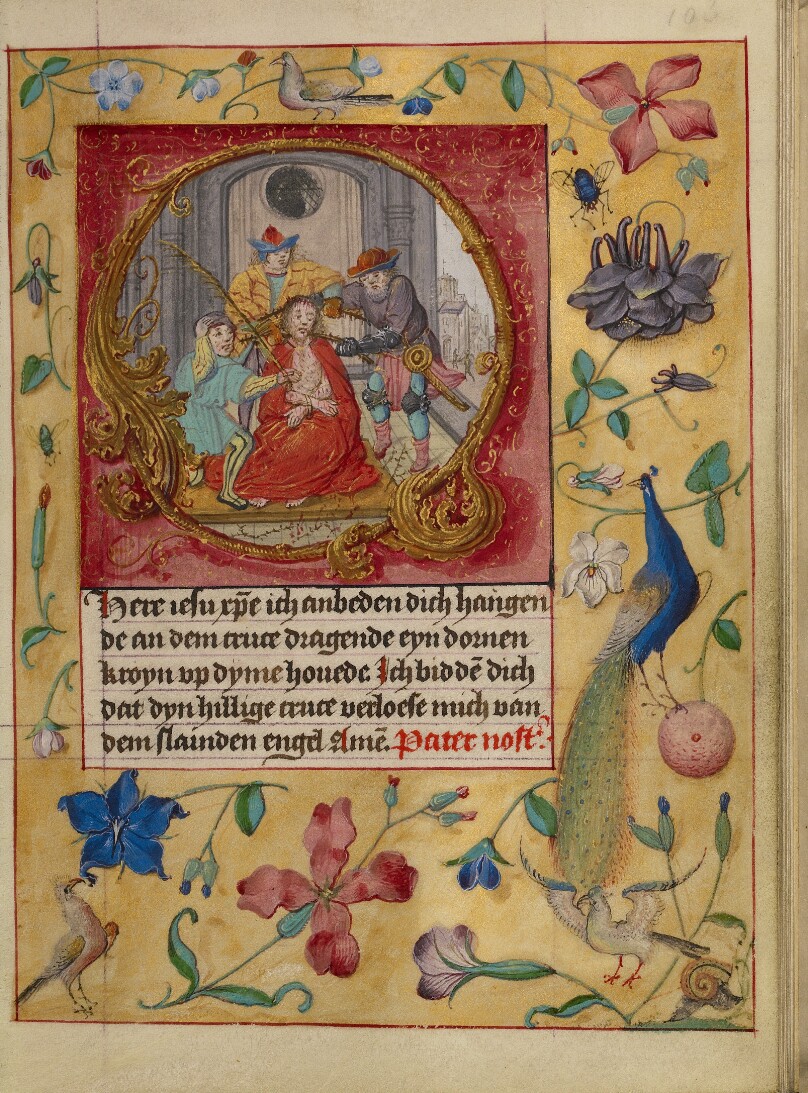 Here iesu xp̄e ich anbeden dich hangen
de an dem cruce dragende eyn dornen
kroyn vp dyme houede. Ich biddē dich
dat dyn hillige cruce verloese mich van
dem slainden engel Amē. Pater nost